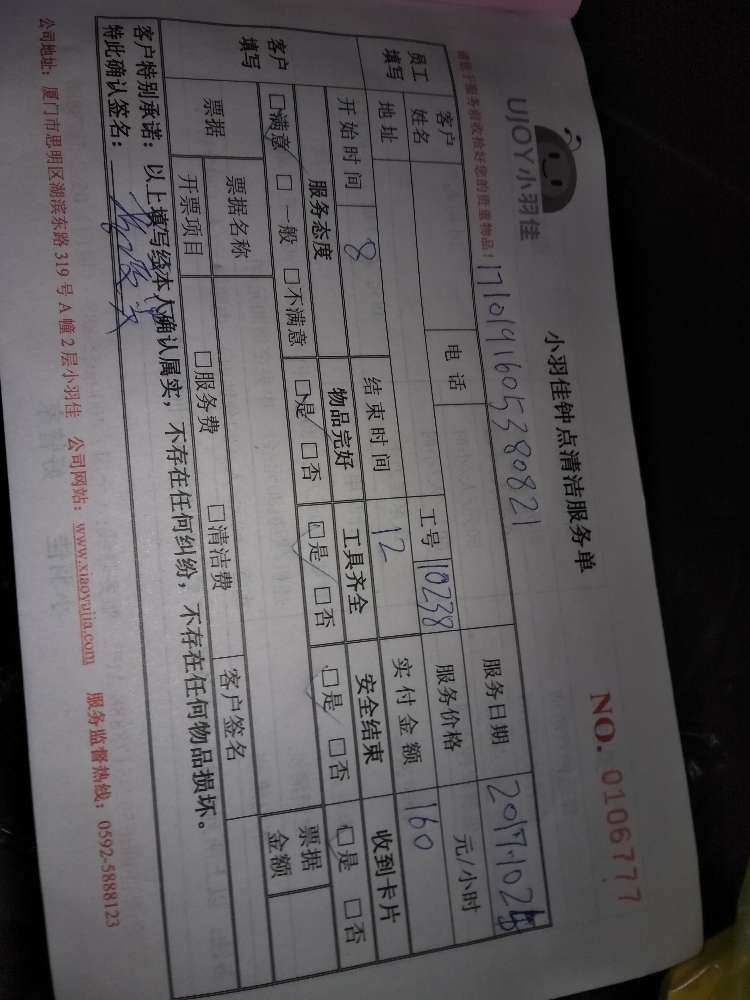 UJOY小羽佳
小羽佳钟点清洁服务单
NO. 0106777
请您于服务前收拾好您的贵重物品！
1710191605380821
员工填写
客户姓名
电话
工号
10238
服务日期
2017.10.2
地址
服务价格
元/小时
开始时间
8
结束时间
12
实付金额
160
客户填写
服务态度
物品完好
工具齐全
安全结束
收到卡片
□满意 □一般 □不满意
□是 □否
□是 □否
□是 □否
□是 □否
票据
票据名称
票据金额
开票项目
□服务费 □清洁费
客户签名
客户特别承诺：以上填写经本人确认属实，不存在任何纠纷，不存在任何物品损坏。
特此确认签名：
公司地址：厦门市思明区湖滨东路319号A幢2层小羽佳 公司网站：www.xiaoyujia.com 服务监督热线：0592-5888123